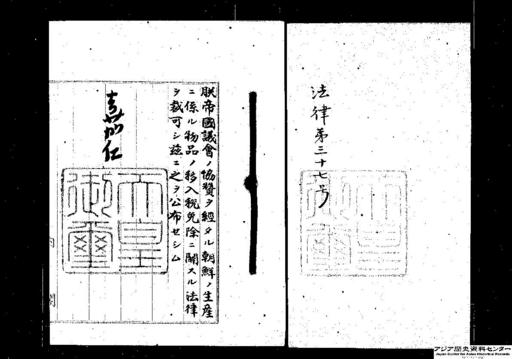 法律第三十七号
朕帝國議會ノ協贊ヲ經タル朝鮮ノ生産
ニ係ル物品ノ移入税免除ニ關スル法律
ヲ裁可シ茲ニ之ヲ公布セシム
嘉仁
天皇
御璽
内
閣
アジア歴史資料センター
Japan Center for Asian Historical Records